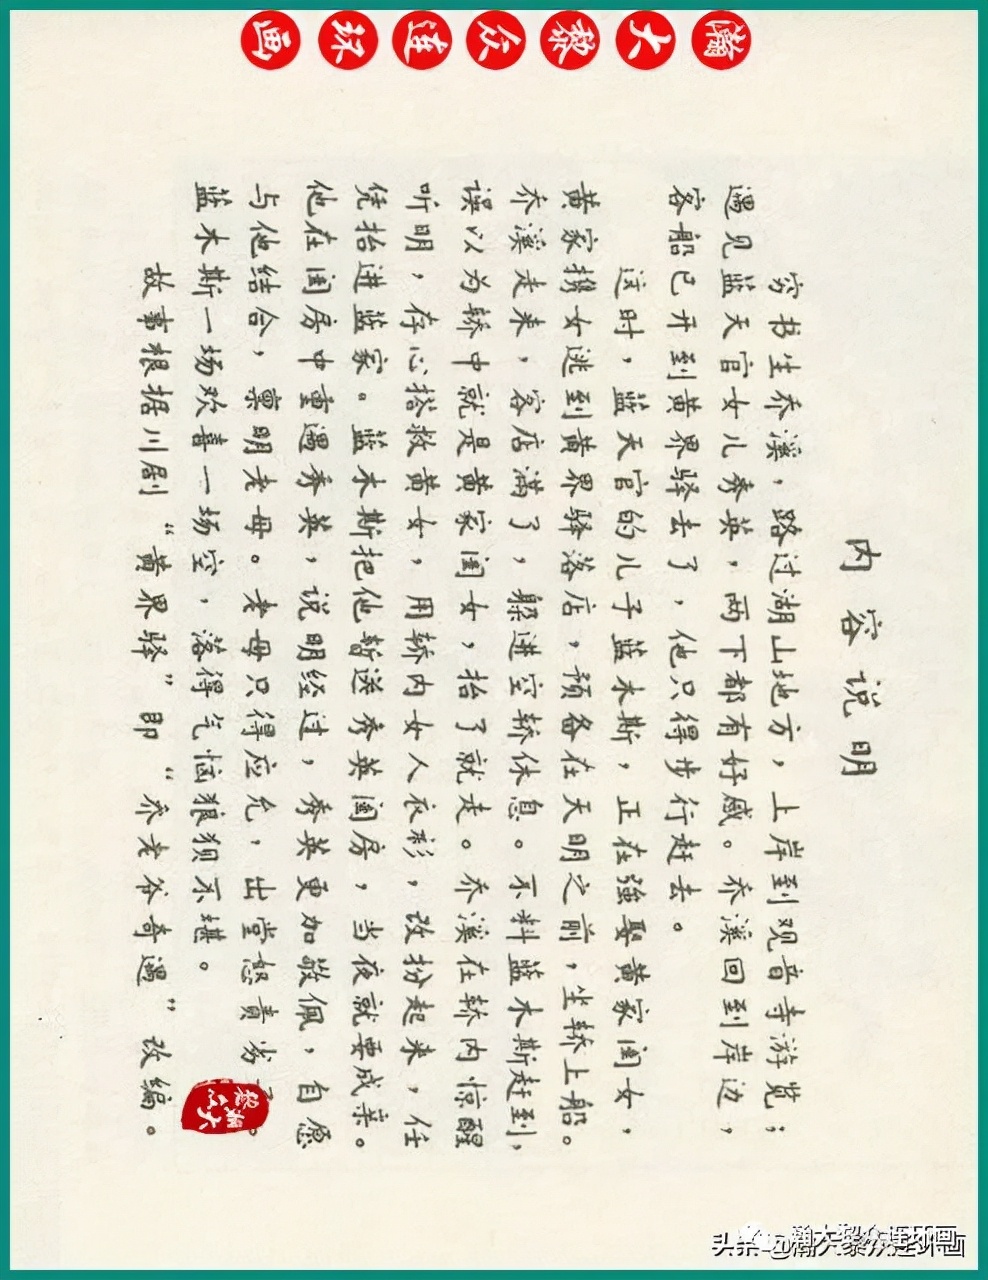 瀚大黎众连环画
内容说明
穷书生乔溪，路过湖山地方，上岸到观音寺游览；
遇见监天官女儿秀英，两下都有好感。乔溪回到岸边，
客船已开到黄界驿去了，他只得步行赶去。
这时，监天官的儿子蓝木斯，正在强娶黄家闺女，
黄家携女逃到黄界驿落店，预备在天明之前，坐轿上船。
乔溪走来，客店满了，躲进空轿休息。不料蓝木斯赶到，
误以为轿中就是黄家闺女，抬了就走。乔溪在轿内惊醒
听明，存心搭救黄女，用轿内女人衣衫，改扮起来，任
凭抬进蓝家。蓝木斯把他暂送秀英闺房，当夜就要成亲。
他在闺房中重遇秀英，说明经过，秀英更加敬佩，自愿
与他结合，禀明老母。老母只得应允，出堂怒责劣
蓝木斯一场欢喜一场空，落得气恼狼狈不堪。
故事根据川剧“黄界驿”即“乔老爷奇遇”改编。
头条@瀚大黎众连环画
瀚大黎众连环画